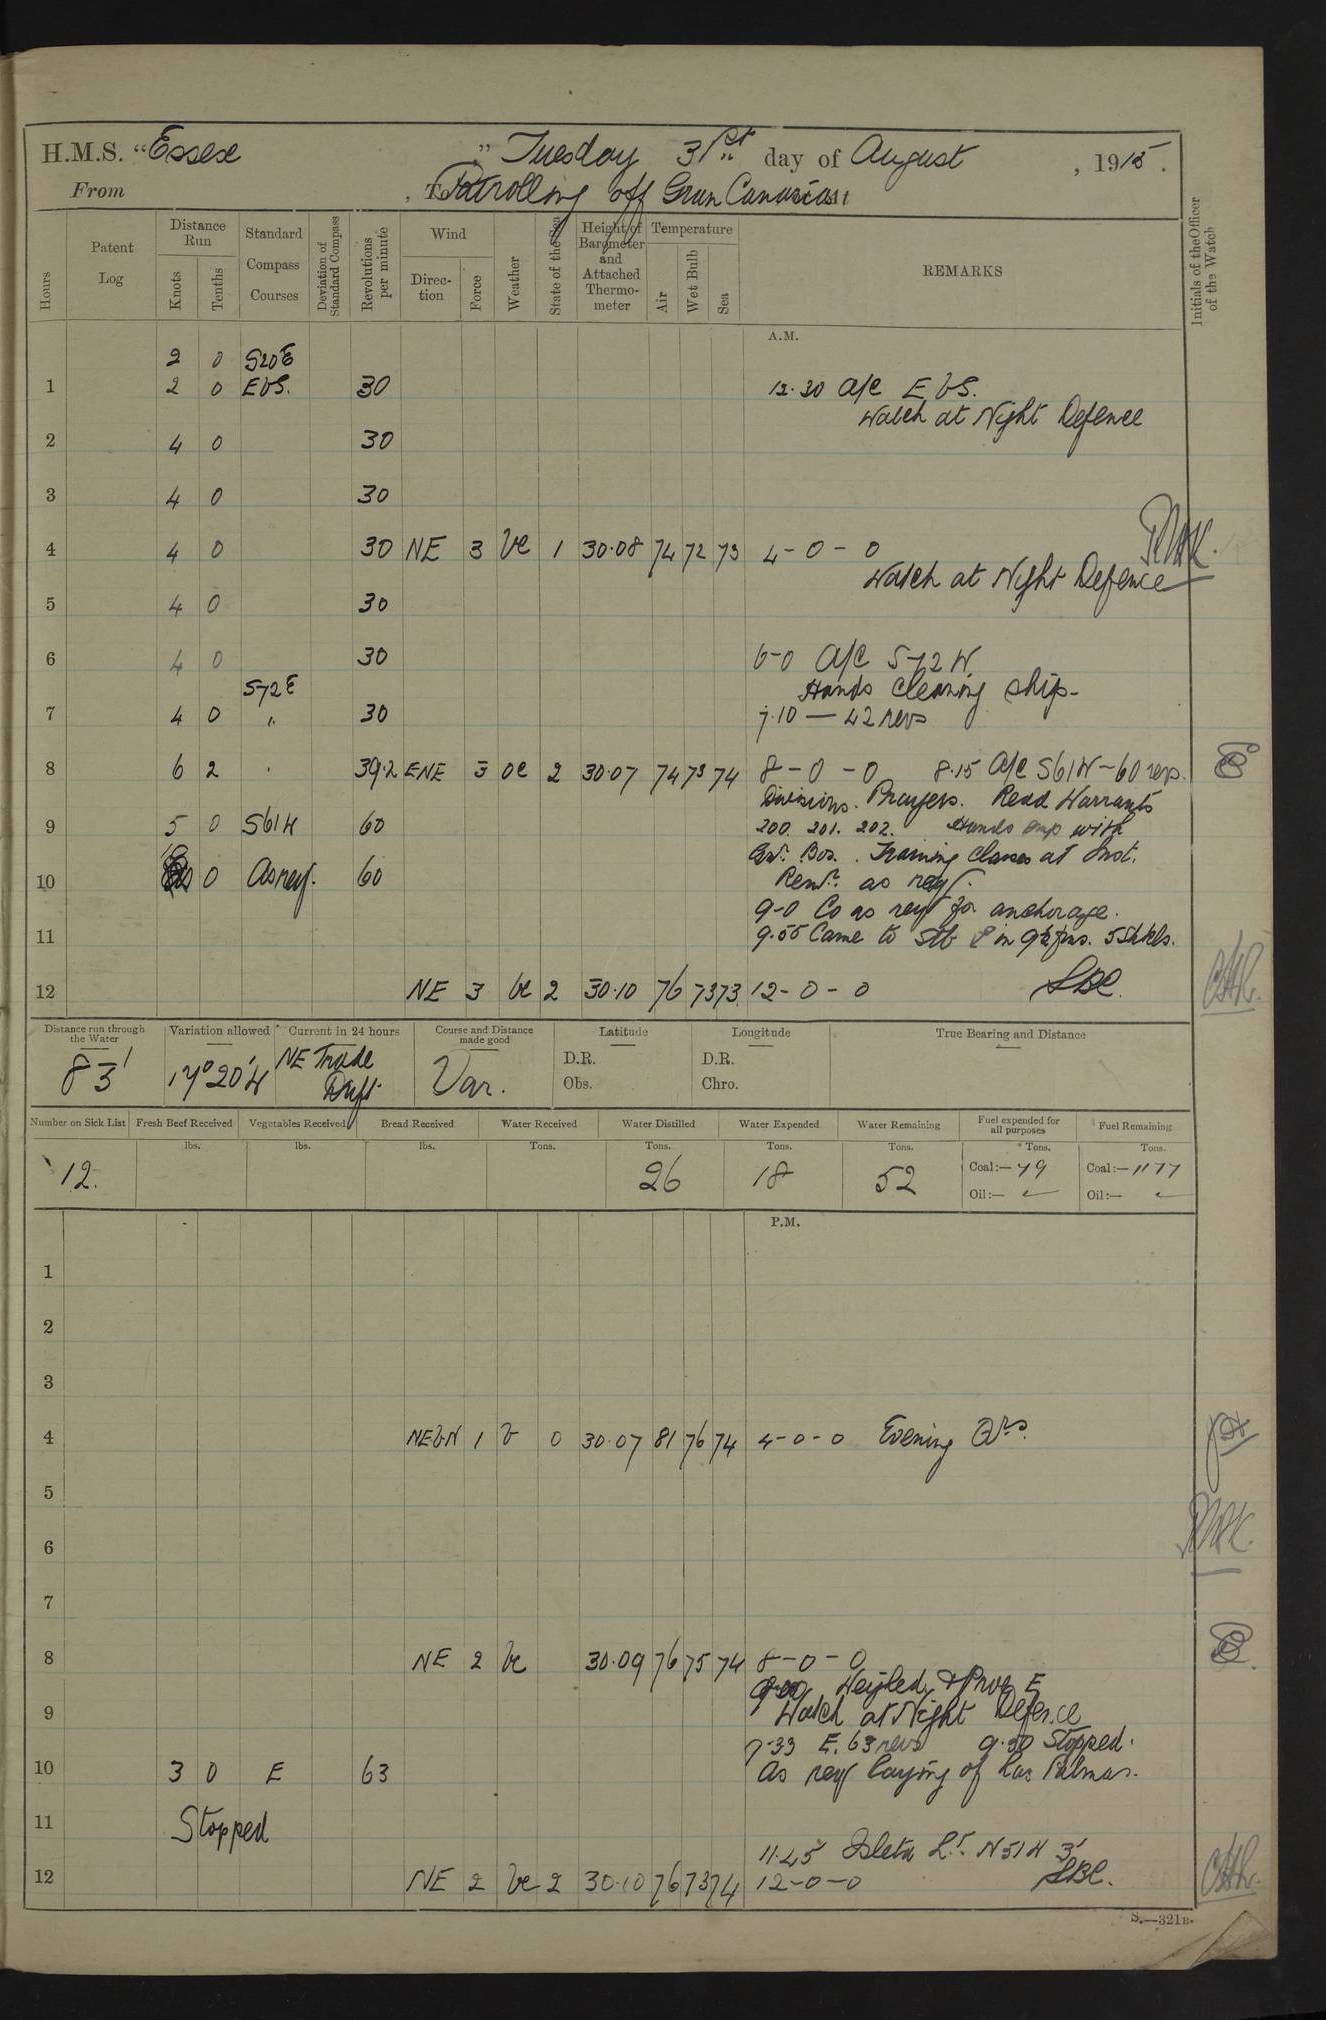 H.M.S. "Essex" Tuesday 31st day of August, 1915.
From , To Patrolling off Gran Canaria
Hours Patent Log Distance Run Knots Tenths Standard Compass Courses Deviation of Standard Compass Revolutions per minute Wind Direction Force Weather State of the Sea Height of Barometer and Attached Thermometer Temperature Air Wet Bulb Sea REMARKS Initials of the Officer of the Watch
A.M.
2 0 S20E
1 2 0 EbS. 30 12.30 a/c EbS.
Watch at Night Defence
2 4 0 30
3 4 0 30
4 4 0 30 NE 3 bc 1 30.08 74 72 73 4-0-0
Watch at Night Defence
5 4 0 30
6 4 0 30 6-0 A/C S72W
S72E Hands cleaning ship-
7 4 0 " 30 7.10 — 42 revs
8 6 2 . 39.2 ENE 3 oc 2 30.07 74 73 74 8-0-0 8.15 A/c S61W-60 revs.
Divisions. Prayers. Read Warrants
9 5 0 S61W 60 200. 201. 202. Hands emp with
Training Classes at Inst.
10 0 As req. 60 Remr. as req.
9-0 Co as req for anchorage.
11 9.55 Came to Stb in 9½ fms. 5 Shkls.
12 NE 3 bc 2 30.10 76 73 73 12-0-0 SBC.
Distance run through the Water Variation allowed Current in 24 hours Course and Distance made good Latitude Longitude True Bearing and Distance
83' 17°20'W NE Trade Drift Var. D.R. D.R.
Obs. Chro.
Number on Sick List Fresh Beef Received Vegetables Received Bread Received Water Received Water Distilled Water Expended Water Remaining Fuel expended for all purposes Fuel Remaining
lbs. lbs. lbs. Tons. Tons. Tons. Tons. Tons. Tons.
12. 26 18 52 Coal:—79 Coal:—1177
Oil:— Oil:—
P.M.
1
2
3
4 NEbN 1 b 0 30.07 81 76 74 4-0-0 Evening Qrs.
5
6
7
8 NE 2 bc 30.09 76 75 74 8-0-0
Weighed & Proc E
9 Watch at Night Defence
7.33 E. 63 revs 9.30 Stopped.
10 3 0 E 63 As req laying of Las Palmas.
11 Stopped
11.45 Isleta Lt. N51W 3'
12 NE 2 bc 2 30.10 76 73 74 12-0-0 SBC.
S.—321B.